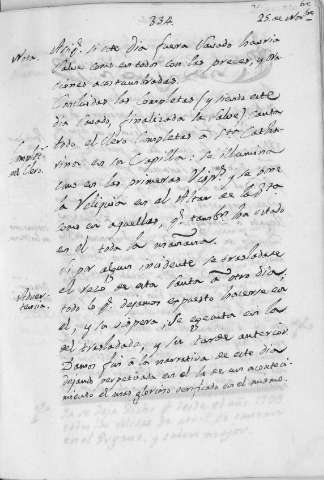 334
25. de Nov.bre
Nota.
Aqi. si este dia fuera Savado havria
Salve como en todos con las preces, y
carnes acostumbradas.
Concluidas las Completas (y siendo este
dia Savado, finalizada la Salve) canta
todo el Clero Completas a Sta Catha-
Complet.s
del Clero.
rina en la Capilla: se illumina
como en las primeras Visp.s y se pone
la Reliquia en el Altar de la Sta
como en aquellas, q.e tambn. ha estado
en el toda la mañana.
Advertencia.
Si por algun incidente se trasladase
el rezo de esta Santa a otro dia,
todo lo q.e dejamos expuesto hacerse en
el, y la vispera, se egecuta en la
del trasladado, y su tarde anterior
Damos fin à la narrativa de este dia
dejando perpetuada en el la de un aconteci-
miento el mas glorioso verificado en el mismo.